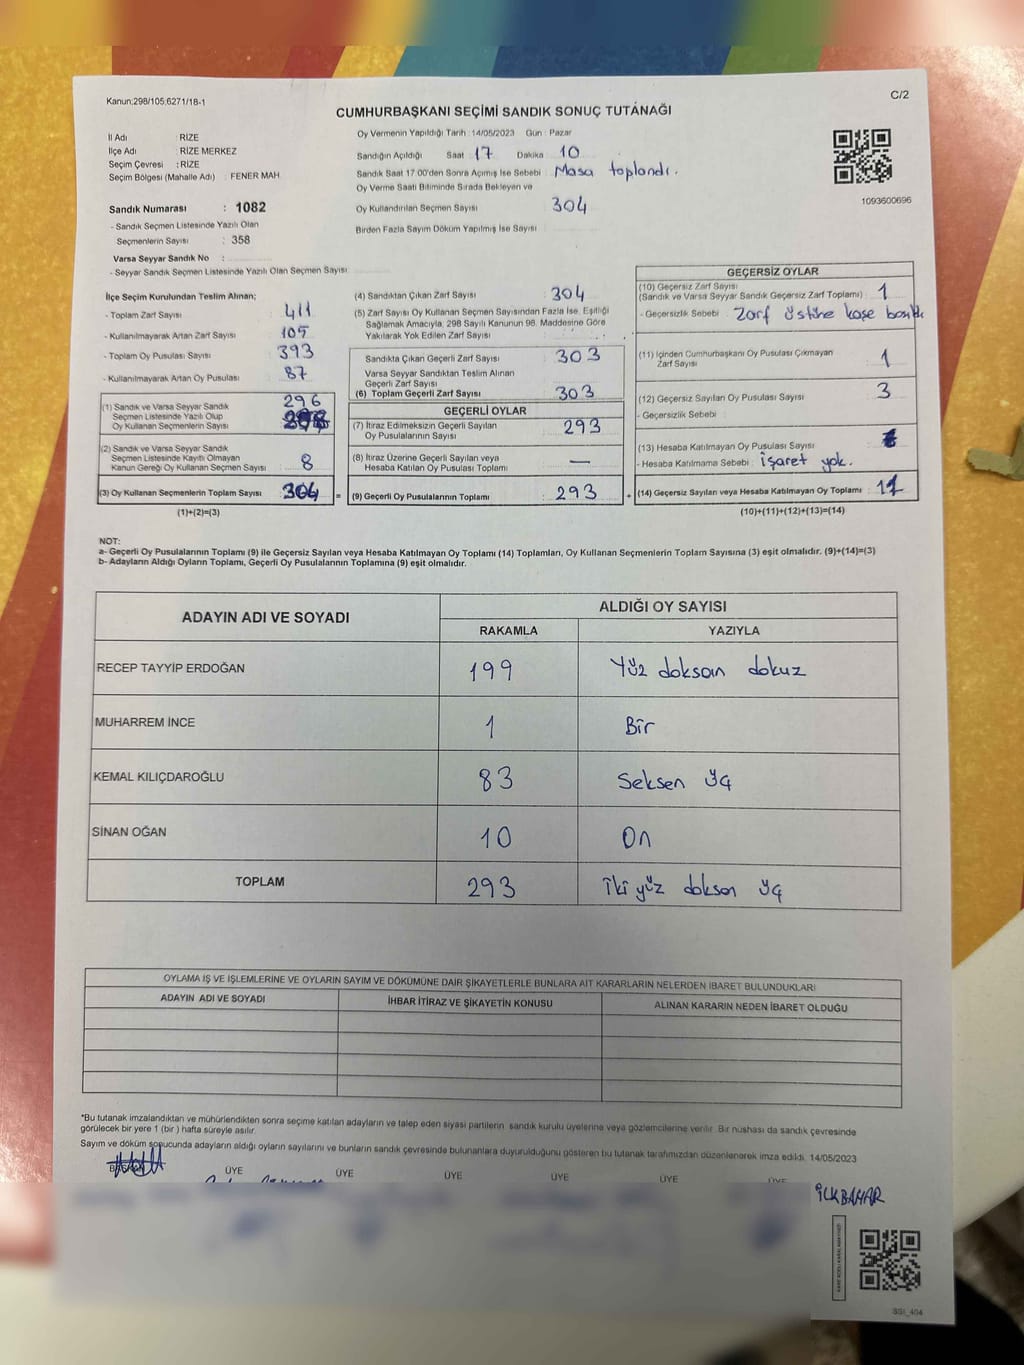 Kanun:298/105;6271/18-1
C/2
CUMHURBAŞKANI SEÇİMİ SANDIK SONUÇ TUTANAĞI
İl Adı : RİZE
İlçe Adı : RİZE MERKEZ
Seçim Çevresi : RİZE
Seçim Bölgesi (Mahalle Adı) : FENER MAH
Sandık Numarası : 1082
- Sandık Seçmen Listesinde Yazılı Olan
Seçmenlerin Sayısı : 358
Varsa Seyyar Sandık No :
- Seyyar Sandık Seçmen Listesinde Yazılı Olan Seçmen Sayısı
Oy Vermenin Yapıldığı Tarih : 14/05/2023 Gün : Pazar
Sandığın Açıldığı Saat 17 Dakika 10
Sandık Saat 17.00'den Sonra Açılmış İse Sebebi Masa toplandı.
Oy Verme Saati Bitiminde Sırada Bekleyen ve
Oy Kullandırılan Seçmen Sayısı 304
Birden Fazla Sayım Döküm Yapılmış İse Sayısı
1093600696
İlçe Seçim Kurulundan Teslim Alınan;
- Toplam Zarf Sayısı : 411
- Kullanılmayarak Artan Zarf Sayısı : 105
- Toplam Oy Pusulası Sayısı : 393
- Kullanılmayarak Artan Oy Pusulası : 87
(1) Sandık ve Varsa Seyyar Sandık
Seçmen Listesinde Yazılı Olup
Oy Kullanan Seçmenlerin Sayısı : 296
(2) Sandık ve Varsa Seyyar Sandık
Seçmen Listesinde Kayıtlı Olmayan
Kanun Gereği Oy Kullanan Seçmen Sayısı : 8
(3) Oy Kullanan Seçmenlerin Toplam Sayısı : 304
(1)+(2)=(3)
=
(4) Sandıktan Çıkan Zarf Sayısı : 304
(5) Zarf Sayısı Oy Kullanan Seçmen Sayısından Fazla İse, Eşitliği
Sağlamak Amacıyla, 298 Sayılı Kanunun 98. Maddesine Göre
Yakılarak Yok Edilen Zarf Sayısı
Sandıkta Çıkan Geçerli Zarf Sayısı : 303
Varsa Seyyar Sandıktan Teslim Alınan
Geçerli Zarf Sayısı
(6) Toplam Geçerli Zarf Sayısı : 303
GEÇERLİ OYLAR
(7) İtiraz Edilmeksizin Geçerli Sayılan
Oy Pusulalarının Sayısı : 293
(8) İtiraz Üzerine Geçerli Sayılan veya
Hesaba Katılan Oy Pusulası Toplamı : —
(9) Geçerli Oy Pusulalarının Toplamı : 293
+
GEÇERSİZ OYLAR
(10) Geçersiz Zarf Sayısı
(Sandık ve Varsa Seyyar Sandık Geçersiz Zarf Toplamı) : 1
- Geçersizlik Sebebi : Zarf üstüne kaşe
(11) İçinden Cumhurbaşkanı Oy Pusulası Çıkmayan
Zarf Sayısı : 1
(12) Geçersiz Sayılan Oy Pusulası Sayısı : 3
- Geçersizlik Sebebi :
(13) Hesaba Katılmayan Oy Pusulası Sayısı :
- Hesaba Katılmama Sebebi : işaret yok.
(14) Geçersiz Sayılan veya Hesaba Katılmayan Oy Toplamı : 11
(10)+(11)+(12)+(13)=(14)
NOT:
a- Geçerli Oy Pusulalarının Toplamı (9) ile Geçersiz Sayılan veya Hesaba Katılmayan Oy Toplamı (14) Toplamları, Oy Kullanan Seçmenlerin Toplam Sayısına (3) eşit olmalıdır. (9)+(14)=(3)
b- Adayların Aldığı Oyların Toplamı, Geçerli Oy Pusulalarının Toplamına (9) eşit olmalıdır.
ADAYIN ADI VE SOYADI
ALDIĞI OY SAYISI
RAKAMLA YAZIYLA
RECEP TAYYİP ERDOĞAN 199 Yüz doksan dokuz
MUHARREM İNCE 1 Bir
KEMAL KILIÇDAROĞLU 83 Seksen üç
SİNAN OĞAN 10 On
TOPLAM 293 İki yüz doksan üç
OYLAMA İŞ VE İŞLEMLERİNE VE OYLARIN SAYIM VE DÖKÜMÜNE DAİR ŞİKAYETLERLE BUNLARA AİT KARARLARIN NELERDEN İBARET BULUNDUKLARI
ADAYIN ADI VE SOYADI İHBAR İTİRAZ VE ŞİKAYETİN KONUSU ALINAN KARARIN NEDEN İBARET OLDUĞU
*Bu tutanak imzalandıktan ve mühürlendikten sonra seçime katılan adayların ve talep eden siyasi partilerin sandık kurulu üyelerine veya gözlemcilerine verilir. Bir nüshası da sandık çevresinde
görülecek bir yere 1 (bir) hafta süreyle asılır.
Sayım ve döküm sonucunda adayların aldığı oyların sayılarını ve bunların sandık çevresinde bulunanlara duyurulduğunu gösteren bu tutanak tarafımızdan düzenlenerek imza edildi. 14/05/2023
BAŞKAN ÜYE ÜYE ÜYE ÜYE ÜYE ÜYE
İLKBAHAR
SSI_404